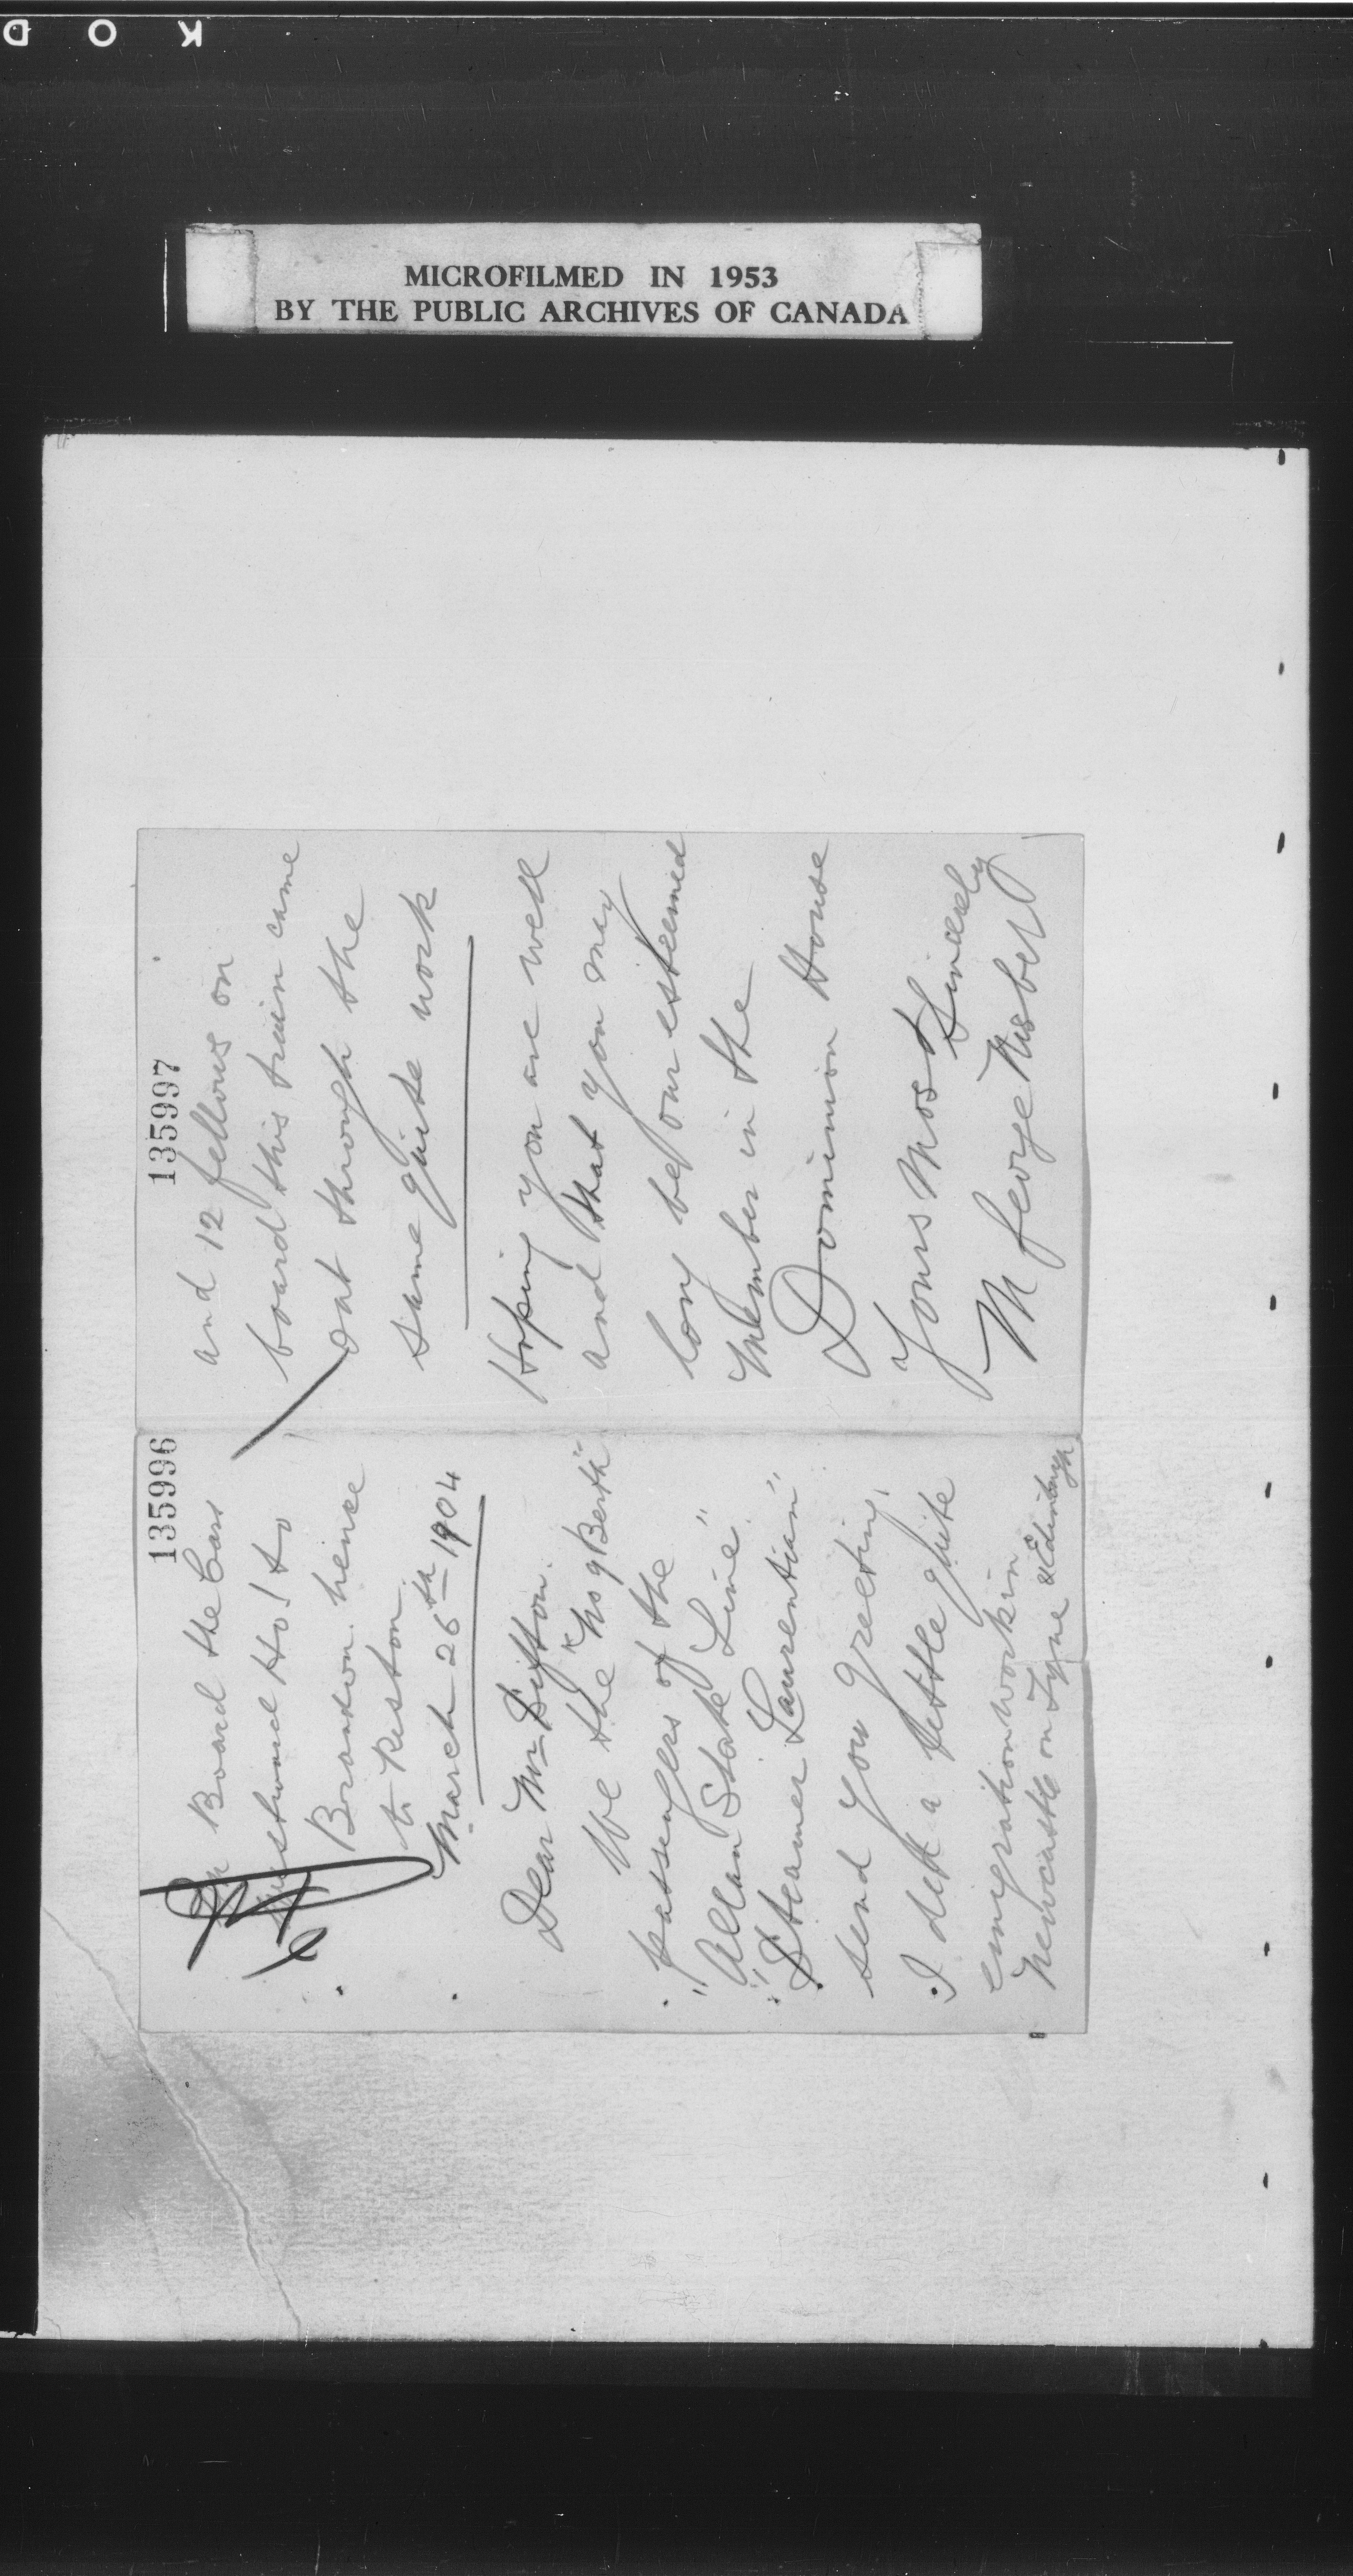 KOD
MICROFILMED IN 1953
BY THE PUBLIC ARCHIVES OF CANADA
135996
On Board the Cars
Westward Ho! to
Brandon hence
to Reston
March 26th 1904
Dear Mr Sifton.
We the "No 9 Berth"
passengers of the
"Allan State Line"
"Steamer Laurentian"
send you greeting,
I did a little quite
emigration work in
Newcastle on Tyne & Edinburgh
135997
and 12 fellows on
board this train came
out through the
same quite work
Hoping you are well
and that you may
long be our esteemed
Member in the
Dominion House
Yours Most Sincerely
M George Nisbet